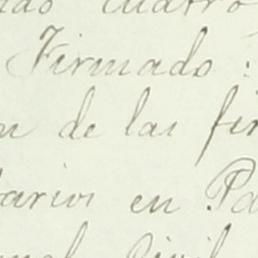 cuatro
Firmado :
de las fir
tarios en Pa